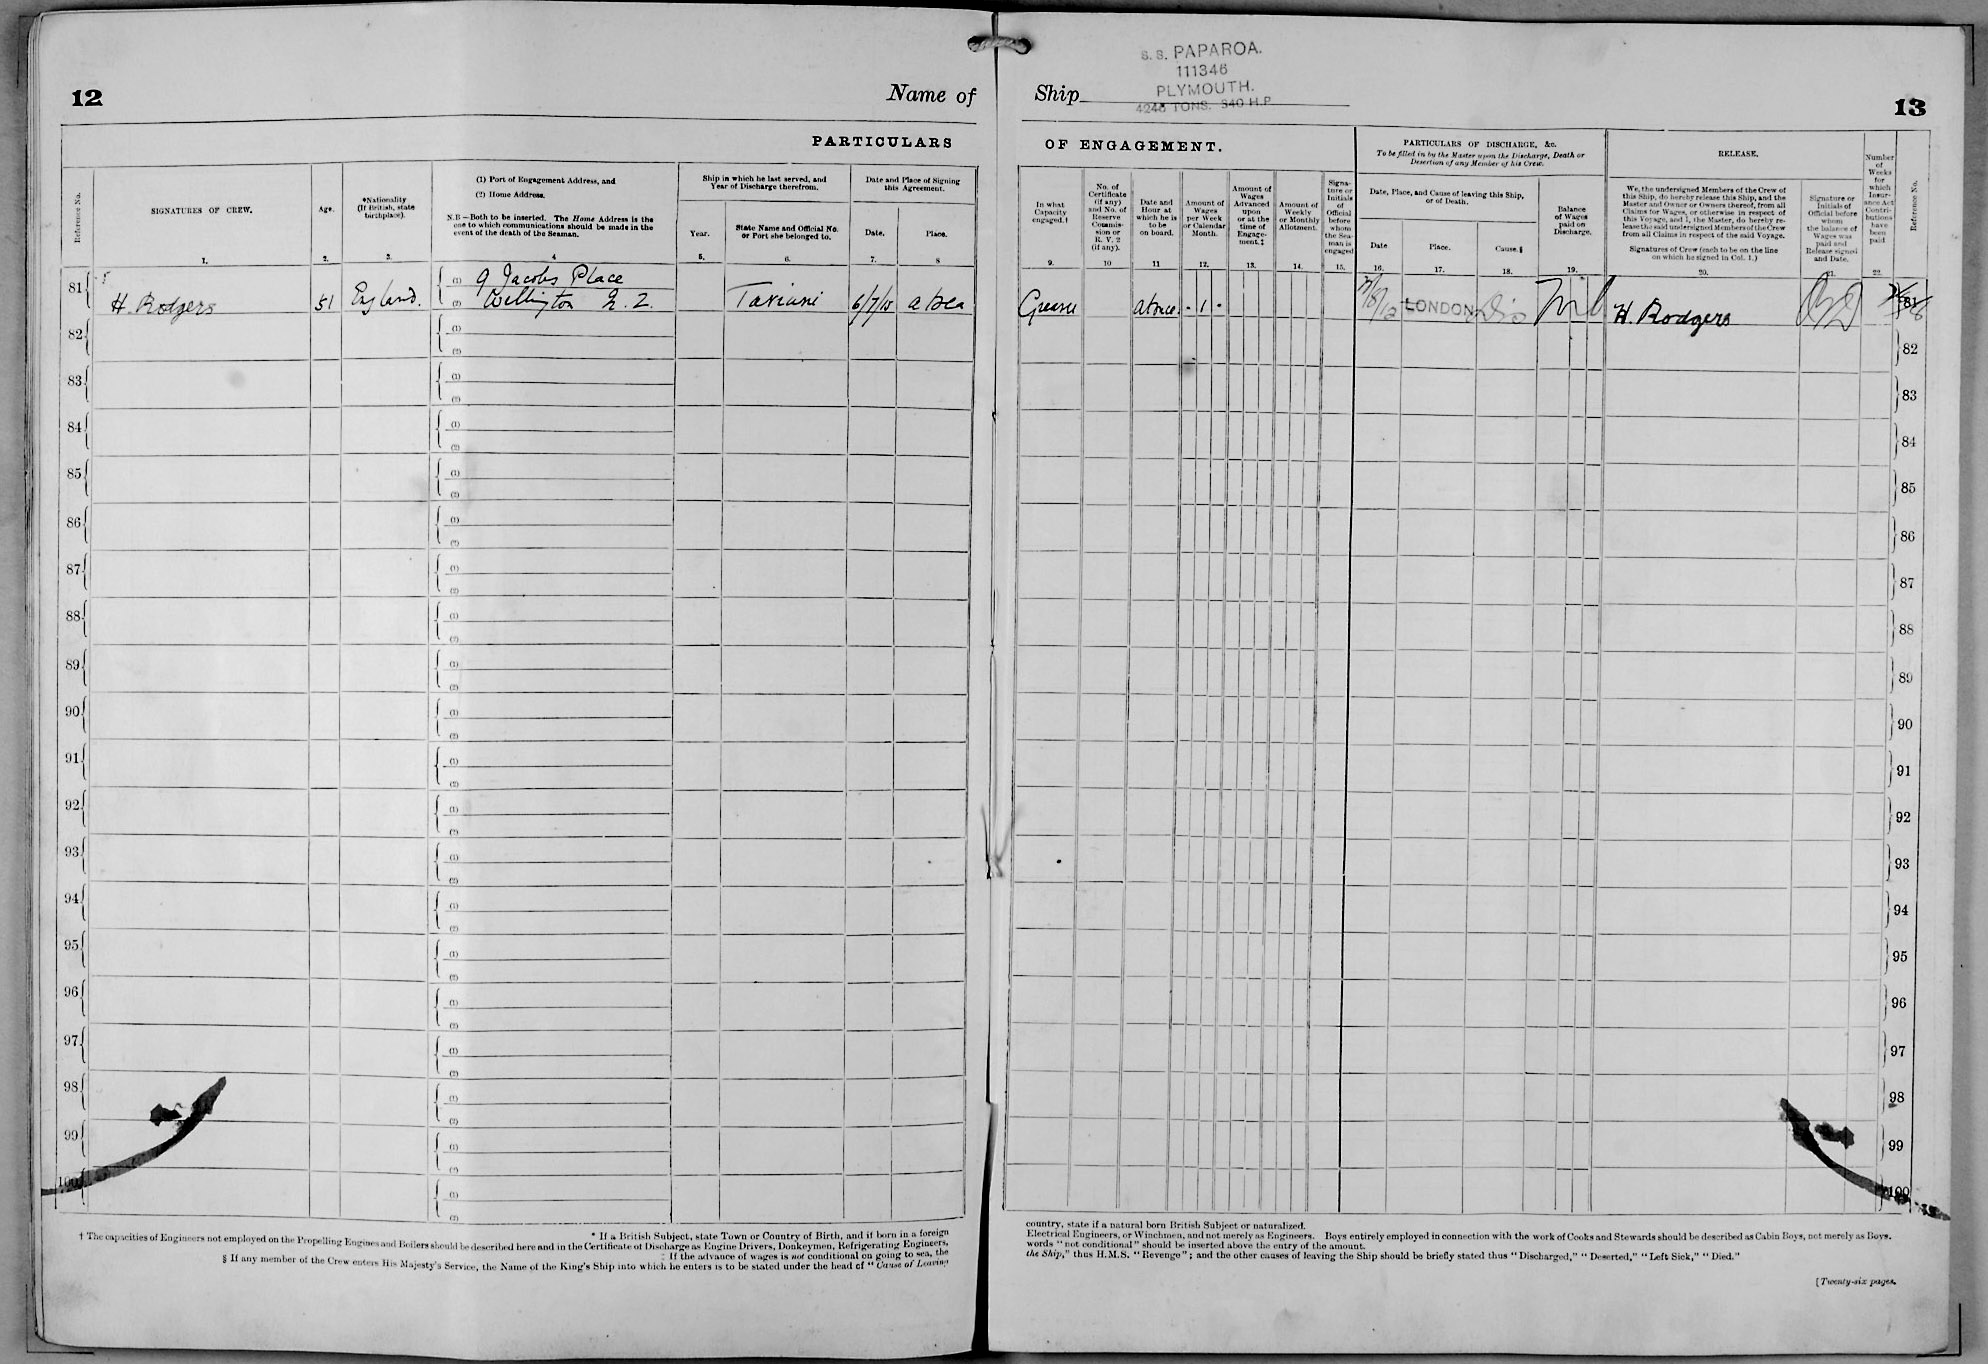 12
Name of
PARTICULARS
Reference No.
SIGNATURES OF CREW.
Age.
*Nationality
(If British, state
birthplace).
(1) Port of Engagement Address, and
(2) Home Address.
N.B—Both to be inserted. The Home Address is the
one to which communications should be made in the
event of the death of the Seaman.
Ship in which he last served, and
Year of Discharge therefrom.
Year.
State Name and Official No.
or Port she belonged to.
Date and Place of Signing
this Agreement.
Date.
Place.
1. 2. 3. 4 5. 6. 7. 8
81 (1) 9 Jacobs Place
H. Rodgers 51 England. (2) Wellington N.Z. 6/7/15 at sea
82 (1)
(2)
83 (1)
(2)
84 (1)
(2)
85 (1)
(2)
86 (1)
(2)
87 (1)
(2)
88 (1)
(2)
89 (1)
(2)
90 (1)
(2)
91 (1)
(2)
92 (1)
(2)
93 (1)
(2)
94 (1)
(2)
95 (1)
(2)
96 (1)
(2)
97 (1)
(2)
98 (1)
(2)
99 (1)
(2)
100 (1)
(2)
* If a British Subject, state Town or Country of Birth, and if born in a foreign
† The capacities of Engineers not employed on the Propelling Engines and Boilers should be described here and in the Certificate of Discharge as Engine Drivers, Donkeymen, Refrigerating Engineers,
‡ If the advance of wages is not conditional on going to sea, the
§ If any member of the Crew enters His Majesty's Service, the Name of the King's Ship into which he enters is to be stated under the head of "Cause of Leaving
S.S. PAPAROA.
111346
PLYMOUTH.
4246 TONS. 540 H.P.
Ship
13
OF ENGAGEMENT.
In what
Capacity
engaged.†
No. of
Certificate
(if any)
and No. of
Reserve
Commis-
sion or
R. V. 2
(if any).
Date and
Hour at
which he is
to be
on board.
Amount of
Wages
per Week
or Calendar
Month.
Amount of
Wages
Advanced
upon
or at the
time of
Engage-
ment.‡
Amount of
Weekly
or Monthly
Allotment.
Signa-
ture or
Initials
of
Official
before
whom
the Sea-
man is
engaged
PARTICULARS OF DISCHARGE, &c.
To be filled in by the Master upon the Discharge, Death or
Desertion of any Member of his Crew.
Date, Place, and Cause of leaving this Ship,
or of Death.
Date
Place.
Cause.§
Balance
of Wages
paid on
Discharge.
RELEASE.
We, the undersigned Members of the Crew of
this Ship, do hereby release this Ship, and the
Master and Owner or Owners thereof, from all
Claims for Wages, or otherwise in respect of
this Voyage, and I, the Master, do hereby re-
lease the said undersigned Members of the Crew
from all Claims in respect of the said Voyage.
Signatures of Crew (each to be on the line
on which he signed in Col. 1.)
Signature or
Initials of
Official before
whom
the balance of
Wages was
paid and
Release signed
and Date.
Number
of
Weeks
for
which
Insur-
ance Act
Contri-
butions
have
been
paid
Reference No.
9. 10 11 12. 13. 14. 15. 16. 17. 18. 19. 20. 21. 22.
Greaser at once - 1 - LONDON Dis Nil H. Rodgers 81
82
83
84
85
86
87
88
89
90
91
92
93
94
95
96
97
98
99
100
country, state if a natural born British Subject or naturalized.
Electrical Engineers, or Winchmen, and not merely as Engineers. Boys entirely employed in connection with the work of Cooks and Stewards should be described as Cabin Boys, not merely as Boys.
words "not conditional" should be inserted above the entry of the amount.
the Ship," thus H.M.S. "Revenge"; and the other causes of leaving the Ship should be briefly stated thus "Discharged," "Deserted," "Left Sick," "Died."
[Twenty-six pages.